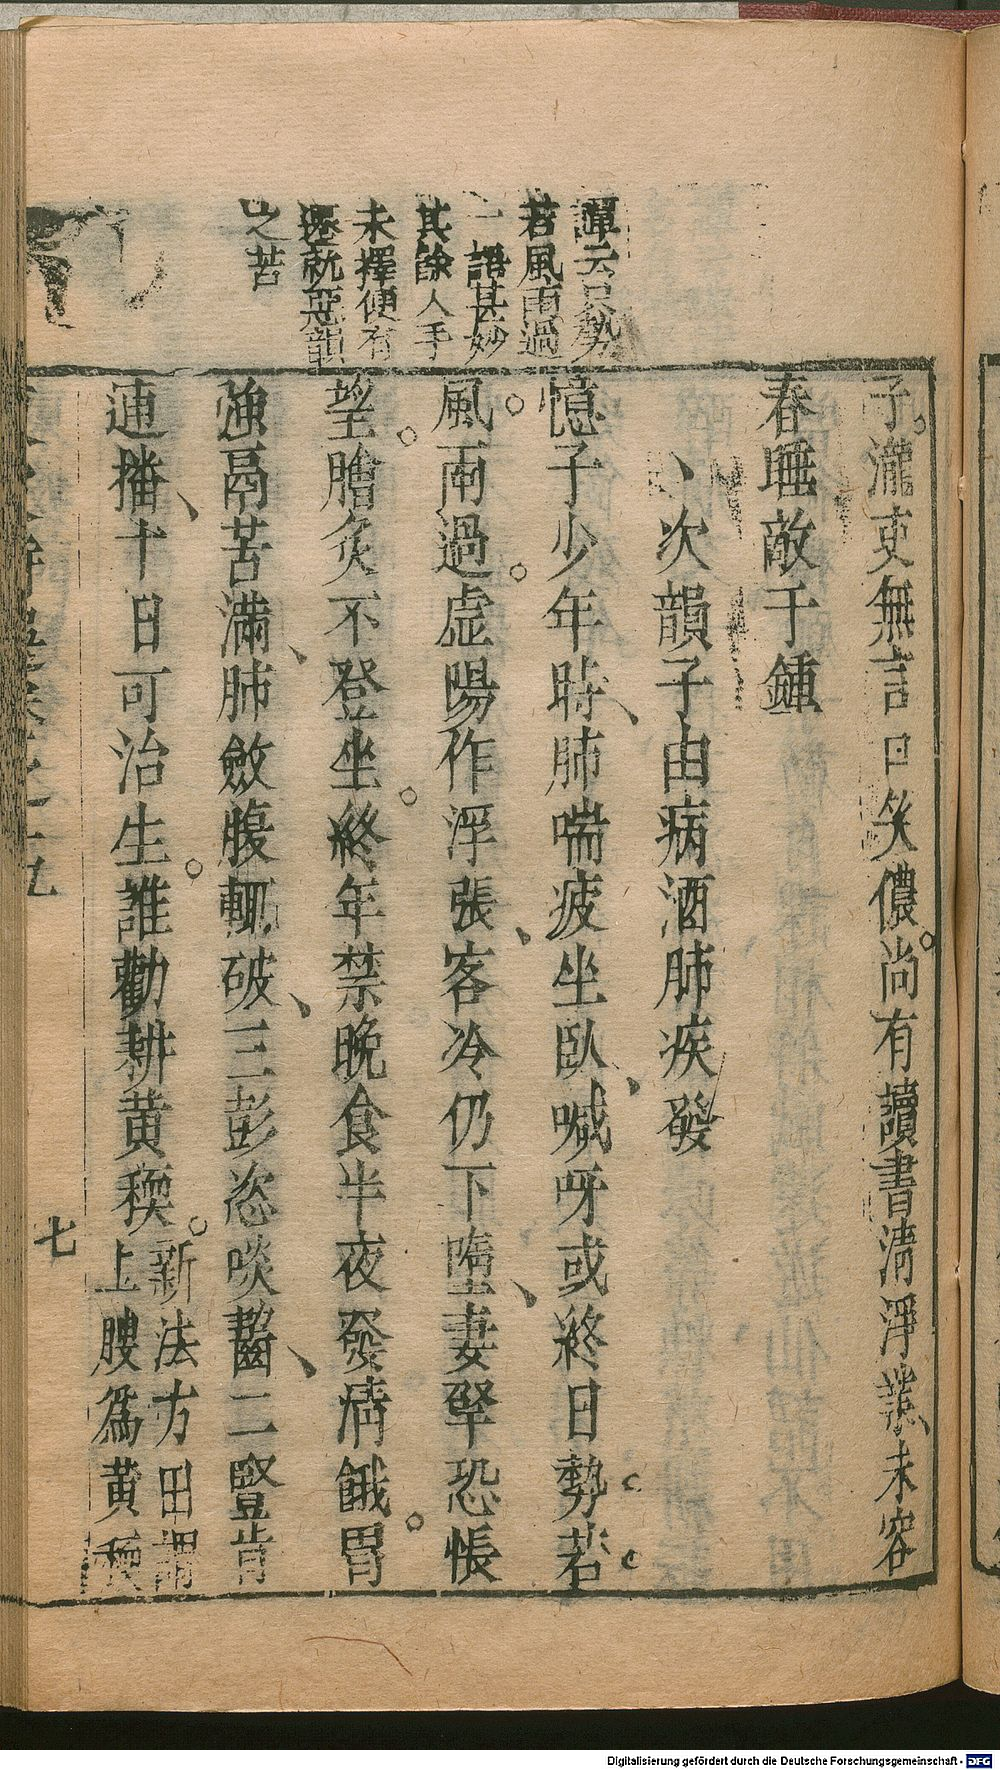 譚云只勢
若風雨過
一語甚妙
其餘人手
未擇便有
趂就惡韻
之苦
子瀧吏無言曰笑儂尚有讀書清淨業未容
春睡敵千鍾
次韻子由病酒肺疾發
憶子少年時肺喘疲坐臥喊呀或終日勢若
風雨過虛陽作浮漲客冷仍下墮妻孥恐悵
望膾炙不登坐終年禁晚食半夜發清餓胃
強鬲苦滿肺斂腹輒破三彭恣啖齧二豎肯
逋播十日可治生誰勸耕黃穤
新法方田謂
上腴為黃穤
七
Digitalisierung gefördert durch die Deutsche Forschungsgemeinschaft - DFG